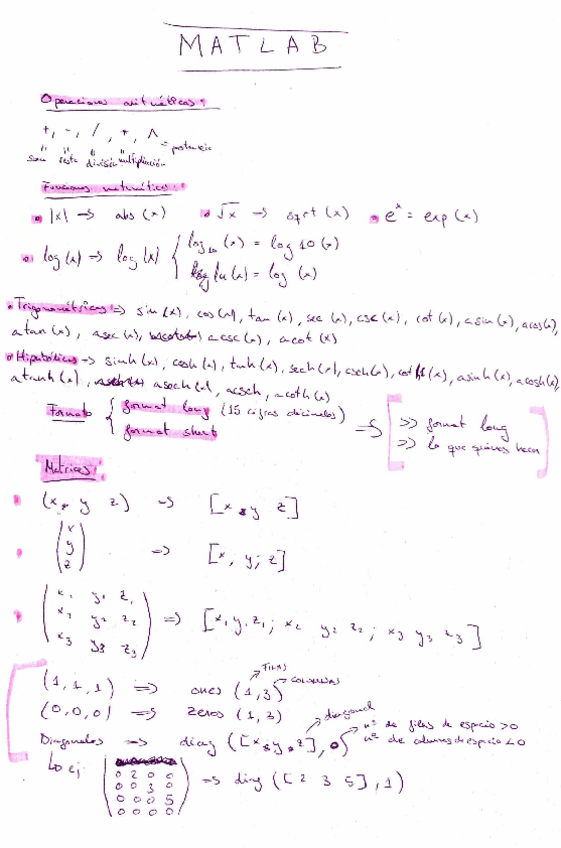 MATLAB
Operaciones aritméticas:
+, -, /, *, ^ = potencia
suma resta división multiplicación
Funciones matemáticas:
|x| => abs (x) √x => sqrt (x) e^x = exp (x)
log (x) => log (x) { log₁₀ (x) = log 10 (x)
ln (x) = log (x)
Trigonométricas => sin (x), cos (x), tan (x), sec (x), csc (x), cot (x), asin (x), acos (x),
atan (x), asec (x), acsc (x), acot (x)
Hiperbólicas => sinh (x), cosh (x), tanh (x), sech (x), csch (x), coth (x), asinh (x), acosh (x),
atanh (x), asech (x), acsch, acoth (x)
Formato { format long (15 cifras decimales)
format short
=> [ >> format long
>> lo que quieras hacer ]
Matrices:
(x, y z) => [x y z]
(x
y
z) => [x, y; z]
(x₁ y₁ z₁
x₂ y₂ z₂
x₃ y₃ z₃) => [x₁ y₁ z₁; x₂ y₂ z₂; x₃ y₃ z₃]
FILAS
(1,1,1) => ones (1,3) COLUMNAS
(0,0,0) => zeros (1,3) diagonal
Diagonales => diag ([x, y, z], 0) nº de filas de espacio >0
nº de columnas de espacio <0
Ej
(0 2 0 0
0 0 3 0
0 0 0 5
0 0 0 0) => diag ([2 3 5], 1)